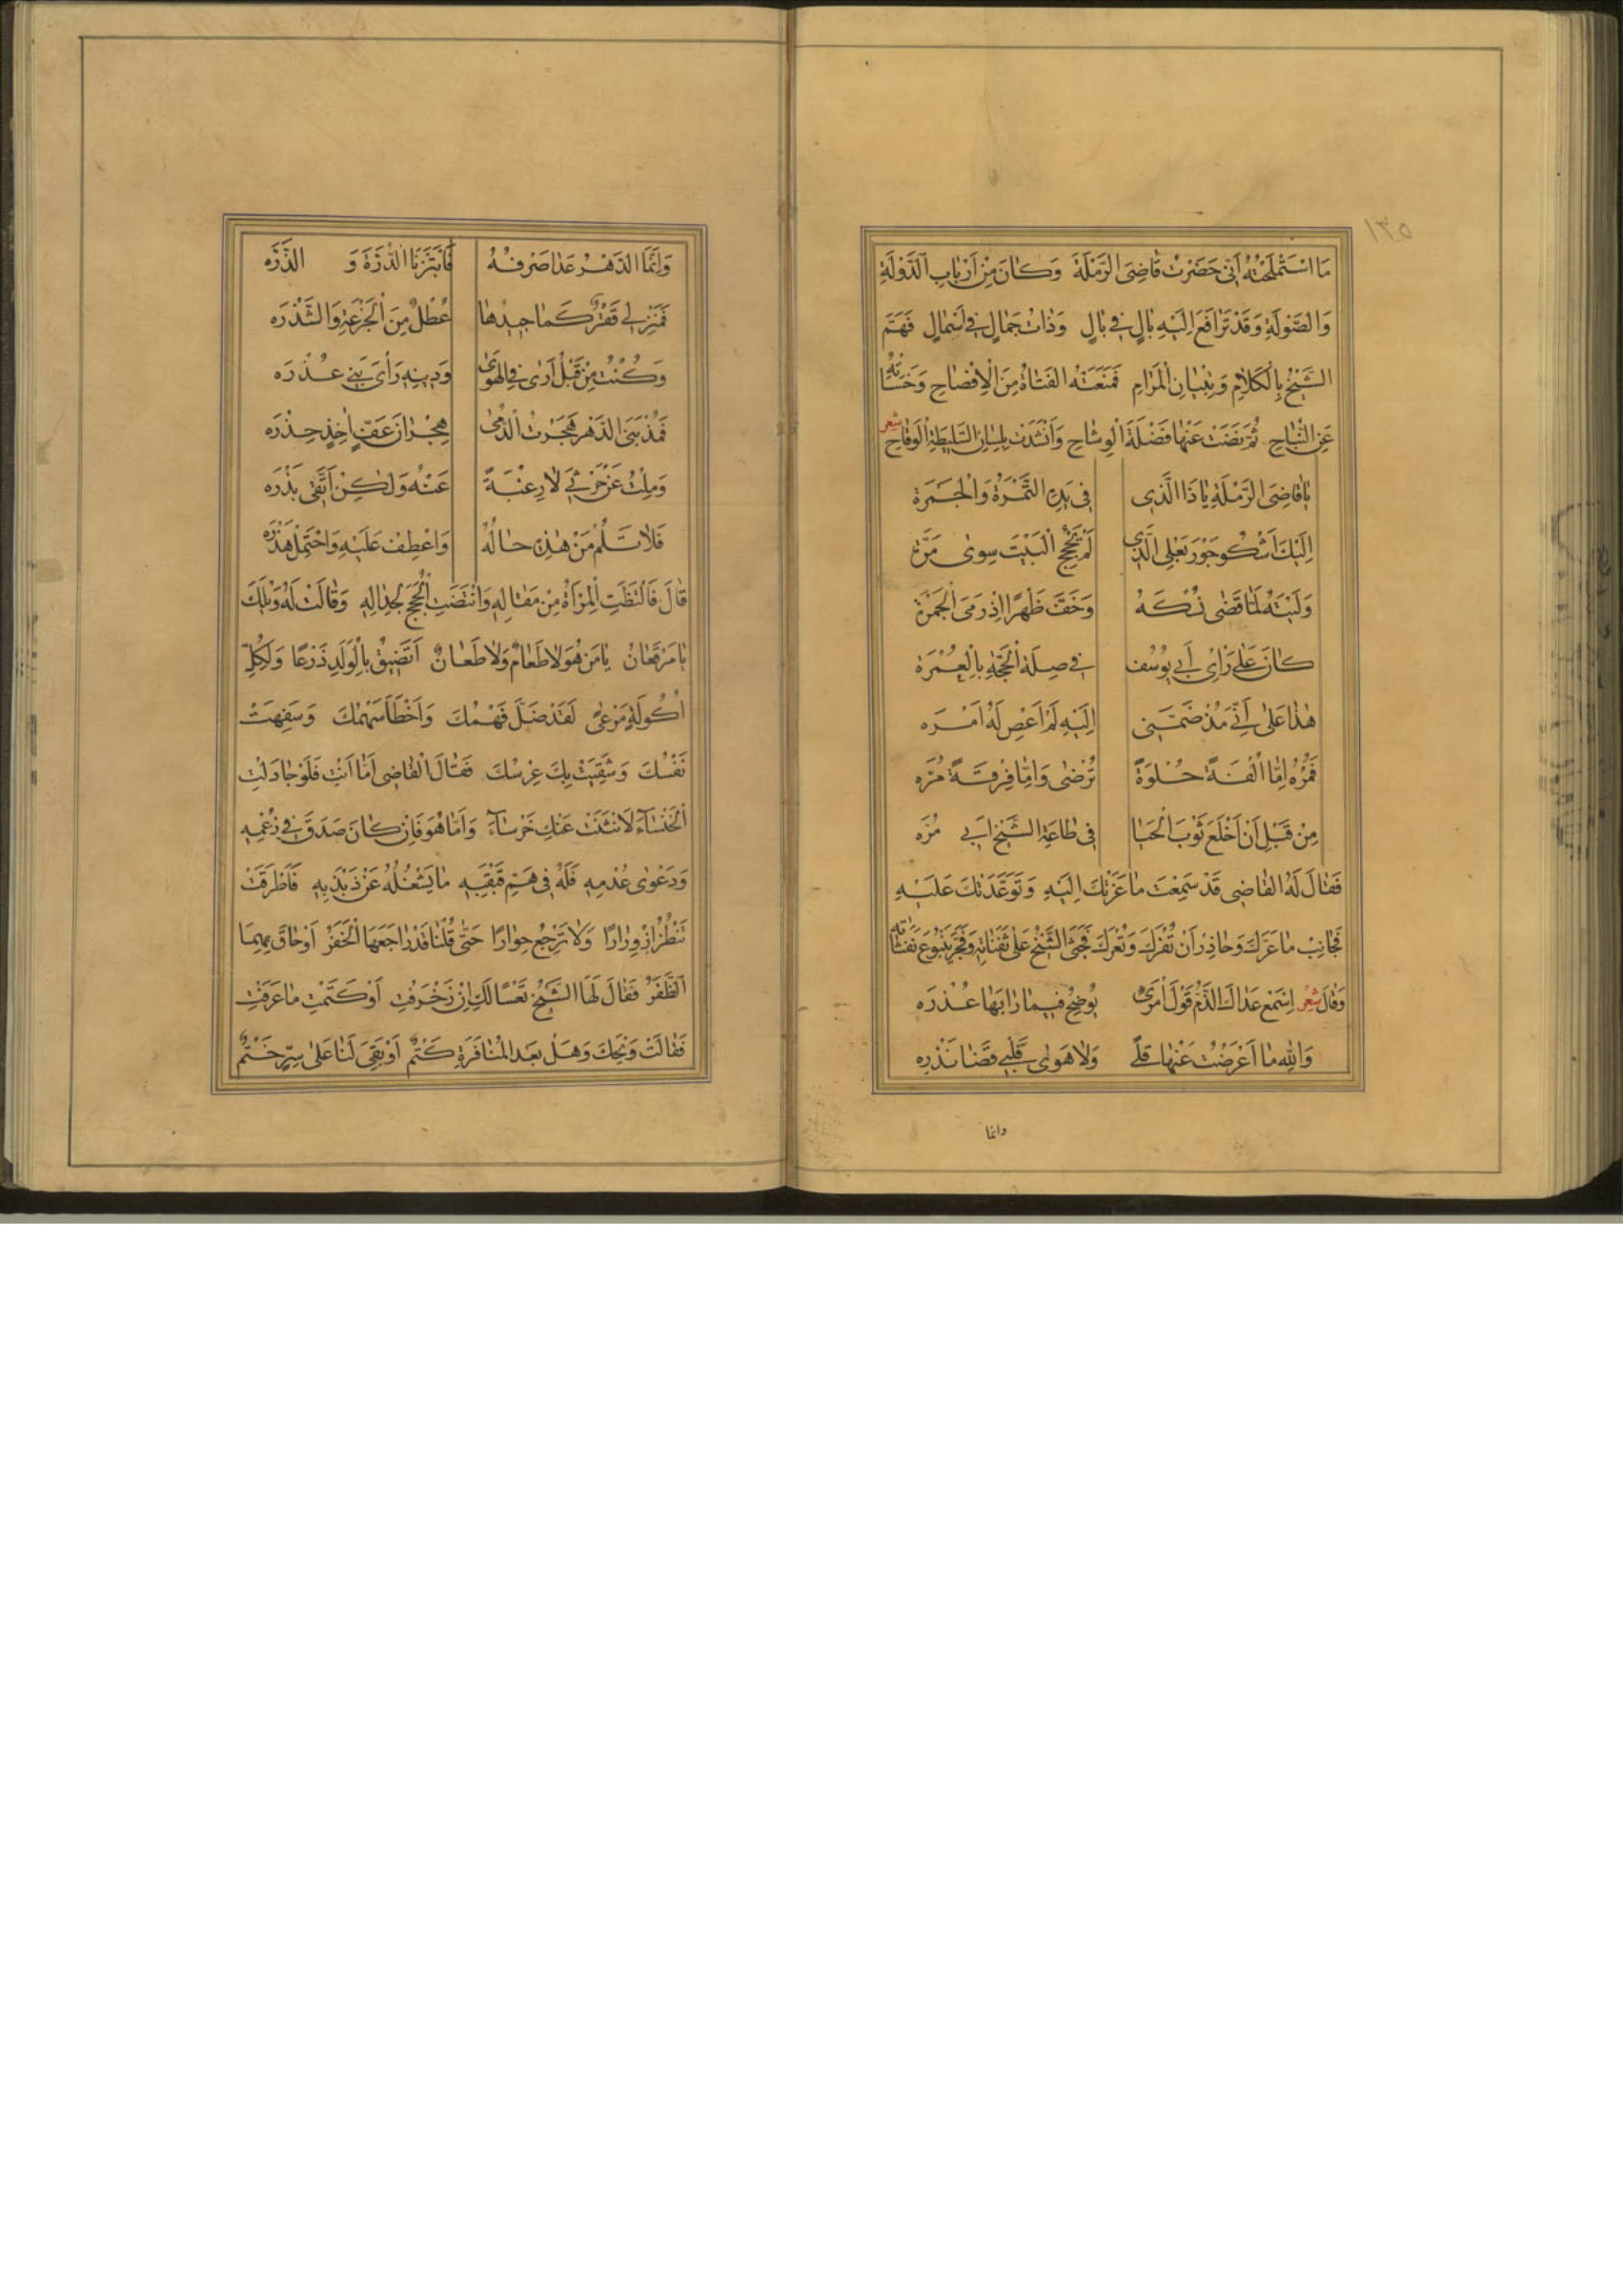 ١٣٥
مَا اسْتَمْلَحْتُهُ اَنّي حَضَرْتُ قَاضِىَ الرَّمْلَةِ وَكَانَ مِنْ اَرْبَابِ الدَّوْلَةِ
وَالصَّوْلَةِ وَقَدْ تَرَافَعَ اِلَيْهِ بَالٍ فِي بَالٍ وَذَاتُ جَمَالٍ فِي اَسْمَالٍ فَهَمَّ
الشَّيْخُ بِالْكَلَامِ وَتِبْيَانِ الْمَرَامِ فَمَنَعَتْهُ الفَتَاةُ مِنَ الْاِفْصَاحِ وَخَسَأَتْهُ
عَنِ النُّبَاحِ ثُمَّ نَضَتْ عَنْهَا فَضْلَةَ الْوِشَاحِ وَاَنْشَدَتْ بِلِسَانِ السَّلِيطَةِ الْوَقَاحِ شعر
يَا قَاضِىَ الرَّمْلَةِ يَا ذَا الَّذِي فِي يَدِهِ التَّمْرَةُ وَالْجَمْرَة
اِلَيْكَ اَشْكُو جَوْرَ بَعْلِي الَّذِي لَمْ يَحْجُجِ الْبَيْتَ سِوٰى مَرَّة
وَلَيْتَهُ لَمَّا قَضٰى نُسْكَهُ وَخَفَّ ظَهْرًا اِذْ رَمَى الْجَمْرَة
كَانَ عَلٰى رَاْيِ اَبِي يُوسُف فِي صِلَةِ الْحَجَّةِ بِالْعُمْرَة
هٰذَا عَلٰى اَنِّي مُذْ ضَمَّنِي اِلَيْهِ لَمْ اَعْصِ لَهُ اَمْرَه
فَمُرْهُ اِمَّا اُلْفَةً حُلْوَةً تُرْضٰى وَاِمَّا فِرْقَةً مُرَّه
مِنْ قَبْلِ اَنْ اَخْلَعَ ثَوْبَ الْحَيَا فِي طَاعَةِ الشَّيْخِ اَبِي مُرَّه
فَقَالَ لَهُ القَاضِي قَدْ سَمِعْتَ مَا عَزَتْكَ اِلَيْهِ وَتَوَعَّدَتْكَ عَلَيْهِ
فَجَانِبْ مَا عَرَّكَ وَحَاذِرْ اَنْ تُفْرَكَ وَتُعْرَكَ فَجَثَى الشَّيْخُ عَلٰى ثَفِنَاتِهِ وَفَجَّرَ يَنْبُوعَ نَفَثَاتِهِ
وَقَالَ شعر اِسْمَعْ عَدَاكَ الذَّمُّ قَوْلَ امْرِئٍ يُوضِحُ فِيمَا رَابَهَا عُذْرَه
وَاللهِ مَا اَعْرَضْتُ عَنْهَا قِلًى وَلَا هَوٰى قَلْبِي قَضٰا نَذْرَه
وانما
وَاِنَّمَا الدَّهْرُ عَدَا صَرْفُهُ فَابْتَزَّنَا الدُّرَّةَ وَ الذَّرَّه
فَمَنْزِلِي قَفْرٌ كَمَا جِيدُهَا عُطْلٌ مِنَ الْجَزْعَةِ وَالشَّذْرَه
وَكُنْتُ مِنْ قَبْلُ اَرٰى فِي الْهَوٰى وَدِينِهِ رَأْىَ بَنِي عُذْرَه
فَمُذْ نَبَى الدَّهْرُ هَجَرْتُ الدُّمٰى هِجْرَانَ عَفٍّ اٰخِذٍ حِذْرَه
وَمِلْتُ عَنْ حَرْثِي لَا رِغْبَةً عَنْهُ وَلٰكِنْ اَتَّقِي بَذْرَه
فَلَا تَلُمْ مَنْ هٰذِهِ حَالُهُ وَاعْطِفْ عَلَيْهِ وَاحْتَمِلْ هَذْرَه
قَالَ فَالْتَظَتِ الْمَرْأَةُ مِنْ مَقَالِهِ وَانْتَضَتِ الْحُجَجَ لِجِدَالِهِ وَقَالَتْ لَهُ وَيْلَكَ
يَا مَرْقَعَانُ يَا مَنْ هُوَ لَا طَعَامٌ وَلَا طَعَانٌ اَتَضِيقُ بِالْوَلَدِ ذَرْعًا وَلِكُلِّ
اَكُولَةٍ مَرْعًى لَقَدْ ضَلَّ فَهْمُكَ وَاَخْطَاَ سَهْمُكَ وَسَفِهَتْ
نَفْسُكَ وَشَقِيَتْ بِكَ عِرْسُكَ فَقَالَ الْقَاضِي اَمَّا اَنْتِ فَلَوْ جَادَلْتِ
الْخَنْسَآءَ لَانْثَنَتْ عَنْكِ خَرْسَآءَ وَاَمَّا هُوَ فَاِنْ كَانَ صَدَقَ فِي زَعْمِهِ
وَدَعْوٰى عُدْمِهِ فَلَهُ فِي هَمِّ قَبْقَبِهِ مَا يَشْغَلُهُ عَنْ ذَبْذَبِهِ فَاَطْرَقَتْ
تَنْظُرُ اِزْوِرَارًا وَلَا تَرْجِعُ حِوَارًا حَتّٰى قُلْنَا قَدْ رَاجَعَهَا الْخَفَرُ اَوْ حَاقَ بِهِمَا
الظَّفَرُ فَقَالَ لَهَا الشَّيْخُ تَعْسًا لَكِ اِنْ زَخْرَفْتِ اَوْ كَتَمْتِ مَا عَرَفْتِ
فَقَالَتْ وَيْحَكَ وَهَلْ بَعْدَ الْمُنَافَرَةِ كَتْمٌ اَوْ بَقِيَ لَنَا عَلٰى سِرٍّ خَتْمٌ